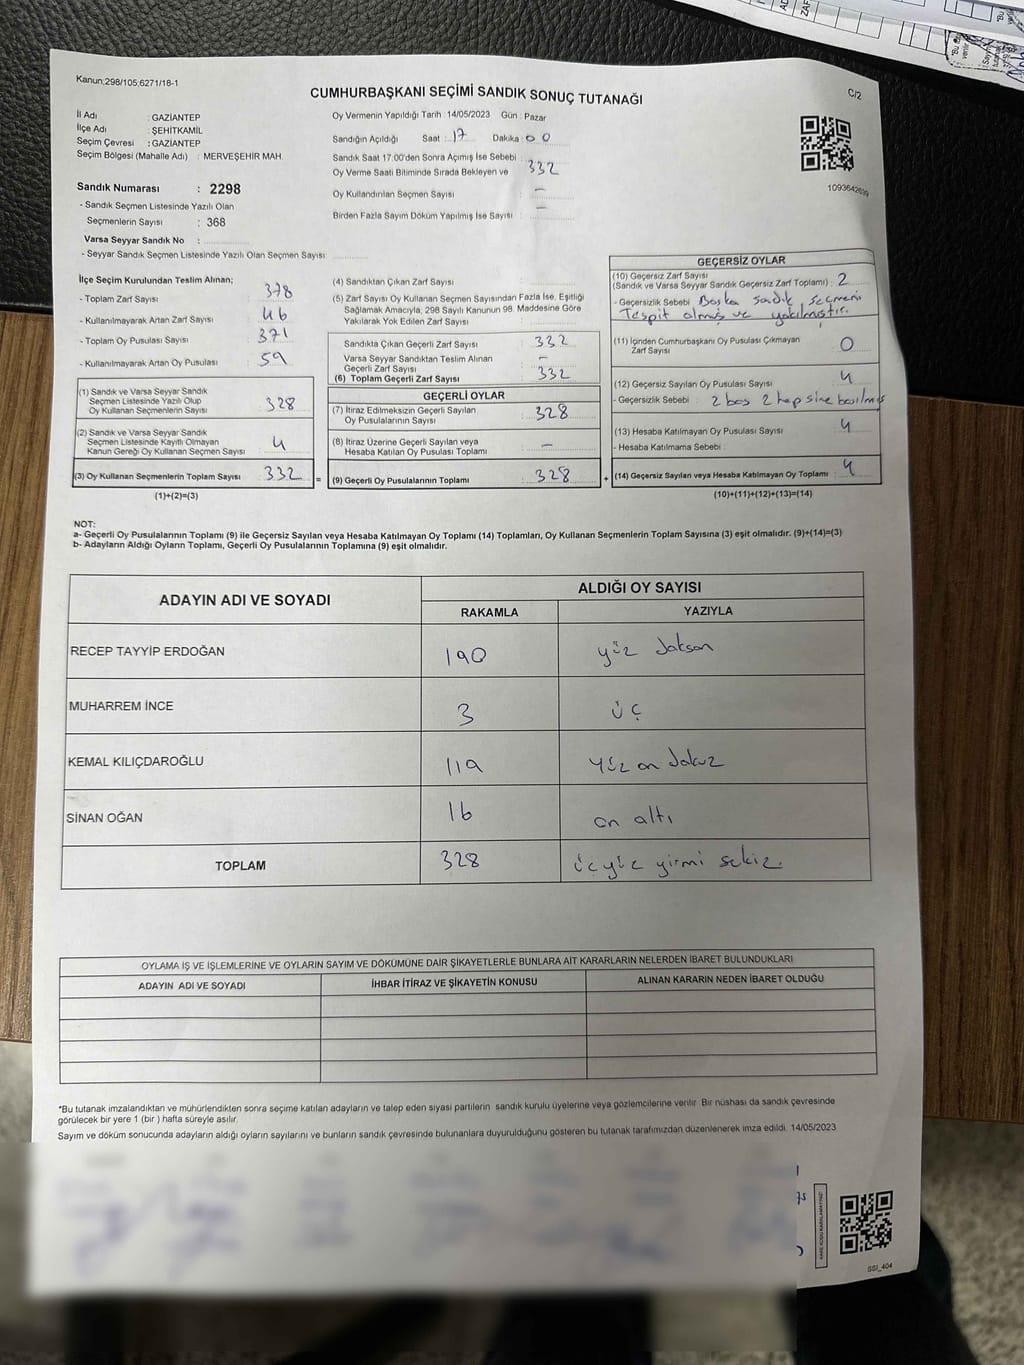 Kanun:298/105;6271/18-1
CUMHURBAŞKANI SEÇİMİ SANDIK SONUÇ TUTANAĞI
C/2
İl Adı : GAZİANTEP
İlçe Adı : ŞEHİTKAMİL
Seçim Çevresi : GAZİANTEP
Seçim Bölgesi (Mahalle Adı) : MERVEŞEHİR MAH.
Sandık Numarası : 2298
- Sandık Seçmen Listesinde Yazılı Olan
Seçmenlerin Sayısı : 368
Varsa Seyyar Sandık No :
- Seyyar Sandık Seçmen Listesinde Yazılı Olan Seçmen Sayısı:
Oy Vermenin Yapıldığı Tarih : 14/05/2023 Gün : Pazar
Sandığın Açıldığı Saat : 17 Dakika : 00
Sandık Saat 17:00'den Sonra Açımış İse Sebebi :
Oy Verme Saati Bitiminde Sırada Bekleyen ve 332
Oy Kullandırılan Seçmen Sayısı : -
Birden Fazla Sayım Döküm Yapılmış İse Sayısı : -
1093642639
İlçe Seçim Kurulundan Teslim Alınan;
- Toplam Zarf Sayısı : 378
- Kullanılmayarak Artan Zarf Sayısı : 46
- Toplam Oy Pusulası Sayısı : 371
- Kullanılmayarak Artan Oy Pusulası : 59
(1) Sandık ve Varsa Seyyar Sandık
Seçmen Listesinde Yazılı Olup
Oy Kullanan Seçmenlerin Sayısı : 328
(2) Sandık ve Varsa Seyyar Sandık
Seçmen Listesinde Kayıtlı Olmayan
Kanun Gereği Oy Kullanan Seçmen Sayısı : 4
(3) Oy Kullanan Seçmenlerin Toplam Sayısı : 332
(1)+(2)=(3)
(4) Sandıktan Çıkan Zarf Sayısı :
(5) Zarf Sayısı Oy Kullanan Seçmen Sayısından Fazla İse, Eşitliği
Sağlamak Amacıyla, 298 Sayılı Kanunun 98. Maddesine Göre
Yakılarak Yok Edilen Zarf Sayısı :
Sandıkta Çıkan Geçerli Zarf Sayısı : 332
Varsa Seyyar Sandıktan Teslim Alınan
Geçerli Zarf Sayısı : -
(6) Toplam Geçerli Zarf Sayısı : 332
GEÇERLİ OYLAR
(7) İtiraz Edilmeksizin Geçerli Sayılan
Oy Pusulalarının Sayısı : 328
(8) İtiraz Üzerine Geçerli Sayılan veya
Hesaba Katılan Oy Pusulası Toplamı : -
= (9) Geçerli Oy Pusulalarının Toplamı : 328
GEÇERSİZ OYLAR
(10) Geçersiz Zarf Sayısı
(Sandık ve Varsa Seyyar Sandık Geçersiz Zarf Toplamı) : 2
- Geçersizlik Sebebi : Başka sandık seçmeni
Tespit olmuş ve yakılmıştır.
(11) İçinden Cumhurbaşkanı Oy Pusulası Çıkmayan
Zarf Sayısı : 0
(12) Geçersiz Sayılan Oy Pusulası Sayısı : 4
- Geçersizlik Sebebi : 2 boş 2 hepsine basılmış
(13) Hesaba Katılmayan Oy Pusulası Sayısı : 4
- Hesaba Katılmama Sebebi :
+ (14) Geçersiz Sayılan veya Hesaba Katılmayan Oy Toplamı : 4
(10)+(11)+(12)+(13)=(14)
NOT:
a- Geçerli Oy Pusulalarının Toplamı (9) ile Geçersiz Sayılan veya Hesaba Katılmayan Oy Toplamı (14) Toplamları, Oy Kullanan Seçmenlerin Toplam Sayısına (3) eşit olmalıdır. (9)+(14)=(3)
b- Adayların Aldığı Oyların Toplamı, Geçerli Oy Pusulalarının Toplamına (9) eşit olmalıdır.
ADAYIN ADI VE SOYADI
ALDIĞI OY SAYISI
RAKAMLA YAZIYLA
RECEP TAYYİP ERDOĞAN 190 yüz doksan
MUHARREM İNCE 3 üç
KEMAL KILIÇDAROĞLU 119 yüz on dokuz
SİNAN OĞAN 16 on altı
TOPLAM 328 üçyüz yirmi sekiz.
OYLAMA İŞ VE İŞLEMLERİNE VE OYLARIN SAYIM VE DÖKÜMÜNE DAİR ŞİKAYETLERLE BUNLARA AİT KARARLARIN NELERDEN İBARET BULUNDUKLARI
ADAYIN ADI VE SOYADI İHBAR İTİRAZ VE ŞİKAYETİN KONUSU ALINAN KARARIN NEDEN İBARET OLDUĞU
*Bu tutanak imzalandıktan ve mühürlendikten sonra seçime katılan adayların ve talep eden siyasi partilerin sandık kurulu üyelerine veya gözlemcilerine verilir. Bir nüshası da sandık çevresinde
görülecek bir yere 1 (bir ) hafta süreyle asılır.
Sayım ve döküm sonucunda adayların aldığı oyların sayılarını ve bunların sandık çevresinde bulunanlara duyurulduğunu gösteren bu tutanak tarafımızdan düzenlenerek imza edildi. 14/05/2023
SSI_404